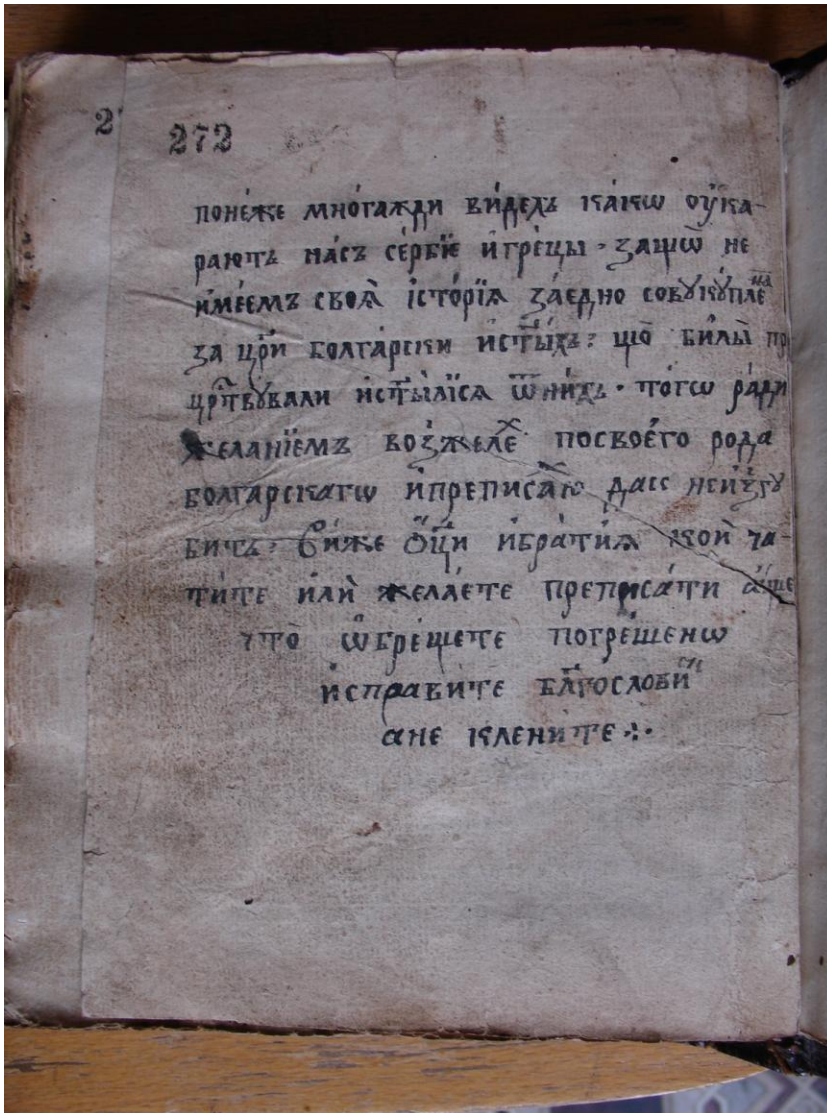 2
272
понеже многажди видехъ какѡ оука-
раютъ насъ сербїе и грецы. защѡ не
имеемъ своѧ їсторїѧ заедно совꙋкꙋплена
за цр҃и болгарски и ст҃ыхъ: що били пр
црⷭ҇твꙋвали и ст҃ылїсѧ ѿ нихъ. тогѡ ради
желанїемъ возжелеⷯ по своего рода
болгарскагѡ и преписаⷯ ю да сѧ не изгꙋ
битъ: ви же ѻц҃и и братиѧ кои ча-
тите или желаете преписати аще
что ѡбрещете погрешенѡ
исправите бл҃гослови
а не клените ⁘